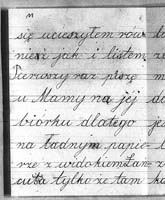 się ucieszyłem rów
nież jak i listem
Pierwszy raz piszę
u Mamy na jéj
biórku dlatego
na ładnym papie-
rze z widokiem Łan-
cuta tylko że tam